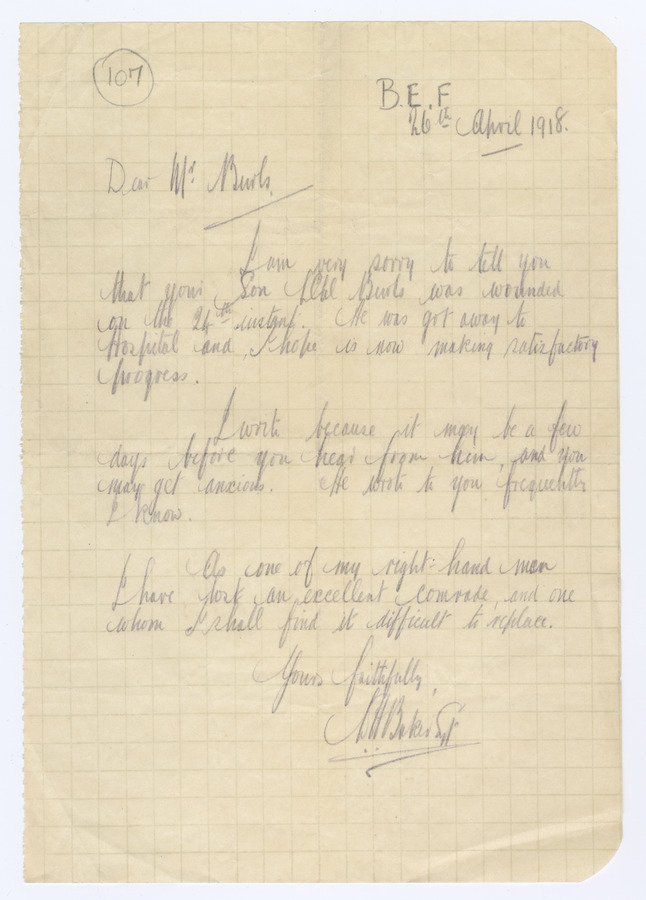 107
B.E.F
26th April 1918.
Dear Mr Burls.
I am very sorry to tell you
that your Son LCpl Burls was wounded
on the 24th instant. He was got away to
Hospital and, I hope is now making satisfactory
progress.
I write because it may be a few
days before you hear from him, and you
may get anxious. He wrote to you frequently
I know.
As one of my right-hand men
I have lost an excellent comrade, and one
whom I shall find it difficult to replace.
Yours faithfully,
Baker Sgt